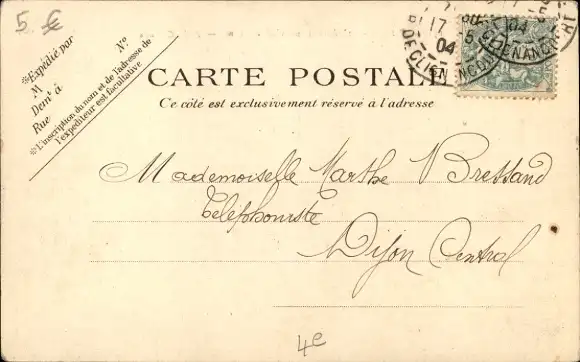 5. €
*Expédié par
M
Demt à
Rue
N°
*L'inscription du nom et de l'adresse de
l'expéditeur est facultative
17
5
04
CARTE POSTALE
Ce côté est exclusivement réservé à l'adresse
Mademoiselle Marthe Bressand
Téléphoniste
Dijon Central
4e